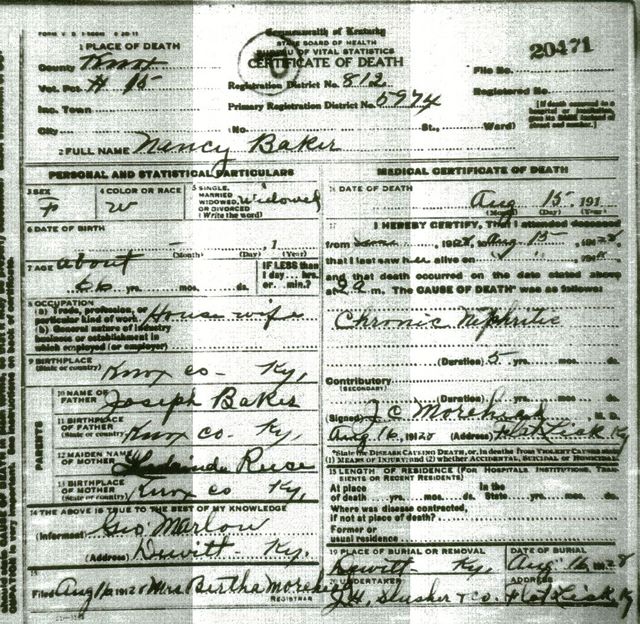 Commonwealth of Kentucky
STATE BOARD OF HEALTH
BUREAU OF VITAL STATISTICS
CERTIFICATE OF DEATH
1 PLACE OF DEATH
County Knox
Vot. Pct. # 15
Inc. Town
City
Registration District No. 812
Primary Registration District No. 5974
No. St., Ward)
20471
File No.
Registered No.
2 FULL NAME Nancy Baker
PERSONAL AND STATISTICAL PARTICULARS
3 SEX F
4 COLOR OR RACE W
5 SINGLE, MARRIED, WIDOWED, OR DIVORCED (Write the word) Widowed
6 DATE OF BIRTH
(Month) (Day) , 1 (Year)
7 AGE about
yrs. mos. ds.
IF LESS than 1 day hrs. or min.?
8 OCCUPATION
(a) Trade, profession, or particular kind of work House wife
(b) General nature of industry business or establishment in which employed (or employer)
9 BIRTHPLACE (State or country) Knox co - Ky,
PARENTS
10 NAME OF FATHER Joseph Baker
11 BIRTHPLACE OF FATHER (State or country) Knox co. Ky,
12 MAIDEN NAME OF MOTHER
13 BIRTHPLACE OF MOTHER (State or country) Knox co Ky,
14 THE ABOVE IS TRUE TO THE BEST OF MY KNOWLEDGE
(Informant) Geo Marlow
(Address) Dewitt - Ky.
Filed Aug 16, 1928 Mrs Bertha
REGISTRAR
MEDICAL CERTIFICATE OF DEATH
DATE OF DEATH
Aug 15, 191
(Month) (Day) (Year)
17 I HEREBY CERTIFY, That I attended deceased
from 1928, to Aug 15, 1928,
that I last saw her alive on
and that death occurred on the date stated above
at m. The CAUSE OF DEATH was as follows:
Chronic Nephritis
(Duration) 5 yrs. mos. ds.
Contributory
(SECONDARY)
(Duration) yrs. mos. ds.
(Signed) J C M. D.
Aug 16, 1928 (Address) Flat Lick Ky
*State the DISEASE CAUSING DEATH, or, in deaths from VIOLENT CAUSES state
(1) MEANS OF INJURY; and (2) whether ACCIDENTAL, SUICIDAL or HOMICIDAL.
LENGTH OF RESIDENCE (FOR HOSPITALS, INSTITUTIONS, TRANSIENTS OR RECENT RESIDENTS)
At place of death yrs. mos. ds. In the State yrs. mos. ds.
Where was disease contracted, if not at place of death?
Former or usual residence
19 PLACE OF BURIAL OR REMOVAL Dewitt Ky.
DATE OF BURIAL Aug 16, 1928
20 UNDERTAKER J.H. Slusher & co.
ADDRESS Flat Lick Ky